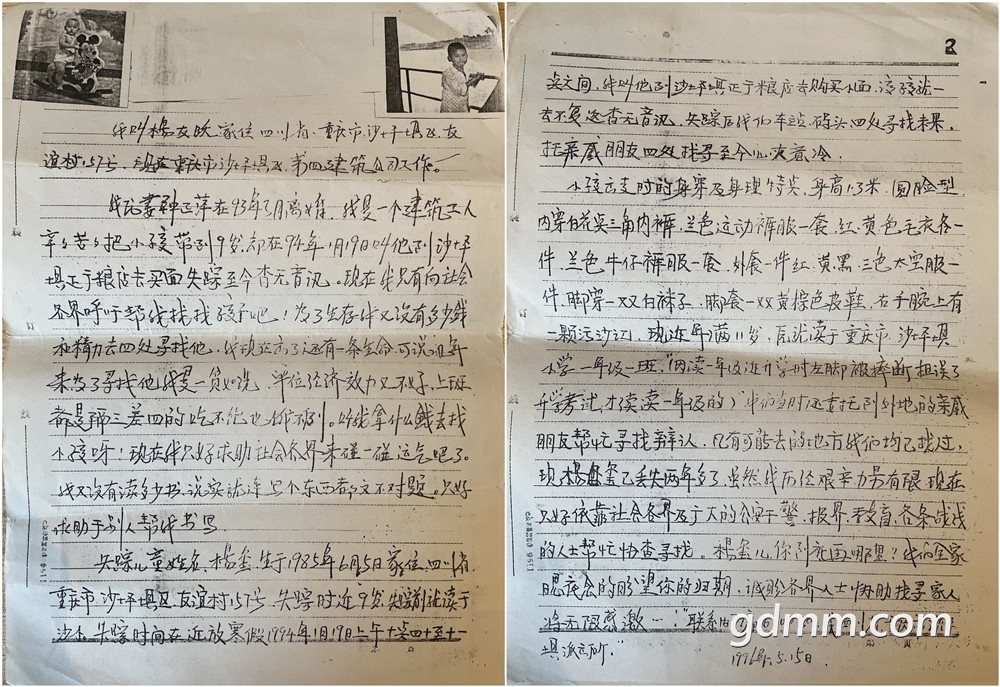 我叫杨友跃,家住四川省,重庆市沙坪坝区友
谊村157号,现在重庆市沙坪坝区,第四建筑公司工作。
在93年3月离婚,我是一个建筑工人
辛辛苦苦把小孩带到9岁,却在94年1月19日叫他到沙坪
坝正于粮店去买面失踪至今杳无音讯。现在我只有向社会
各界呼吁帮我找找孩子吧!为了生存我又没有多少钱
和精力去四处寻找他,我现在除了还有一条生命,可说近年
来为了寻找他我是一贫如洗,单位经济效力又不好,上班
都是隔三差四的吃不饱也饿不到。叫我拿什么钱去找
小孩呀!现在我只好求助社会各界来碰一碰运气吧了。
我又没有读多少书,说实话连写个东西都文不对题。只好
求助于别人帮我书写。
失踪儿童姓名,杨奎,生于1985年6月5日家住,四川省,
重庆市,沙坪坝区,友谊村157号,失踪时近9岁,失踪前就读于
沙小,失踪时间在近放寒假1994年1月19日上午十点四十至十一
2
点之间,我叫他到沙坪坝正于粮店去购买小面,该孩法一
去不复返杳无音讯,失踪后我们车站、码头四处寻找未果,
托亲戚朋友四处找寻至今心灰意冷。
小孩走支时的身穿及身理特点,身高1.3米,圆脸型,
内穿白花点三角内裤,兰色运动裤服一套,红、黄色毛衣各一
件,兰色牛仔裤服一套,外套一件红、黄、黑、三色太空服一
件,脚穿一双白袜子,脚套一双黄棕色皮鞋,右手腕上有
一颗沉沙,现近年满11岁,原就读于重庆市,沙坪坝
小学一年级一班。"因读一年级进升学时左脚被摔断担误了
升学考试才读一年级的"我们当时还委托到外地的亲戚
朋友帮忙寻找辨认,凡有可能去的地方我们均已找过,
现,杨奎已丢失两年多了,虽然我历经艰辛力另有限,现在
只好依靠社会各界及广大的公安干警,报界,教育,各条战线
的人士帮忙协查寻找。杨奎儿,你到底在哪里?我们全家
的盼望你的归期,诚盼各界人士协助找寻家人
将无限感激…;"联系
坝派出所。"
1996年.5.15日.
gdmm.com